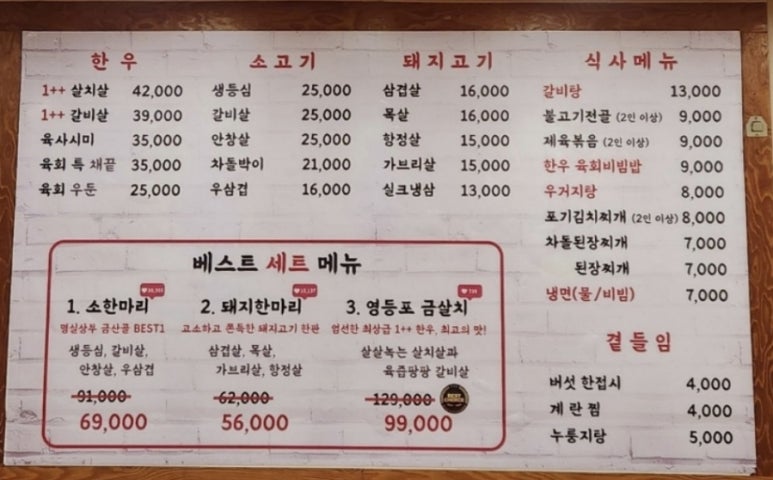 한우
1++ 살치살 42,000
1++ 갈비살 39,000
육사시미 35,000
육회 특 채끝 35,000
육회 우둔 25,000
소고기
생등심 25,000
갈비살 25,000
안창살 25,000
차돌박이 21,000
우삼겹 16,000
돼지고기
삼겹살 16,000
목살 16,000
항정살 15,000
가브리살 15,000
실크냉삼 13,000
식사메뉴
갈비탕 13,000
불고기전골 (2인 이상) 9,000
제육볶음 (2인 이상) 9,000
한우 육회비빔밥 9,000
우거지탕 8,000
포기김치찌개 (2인 이상) 8,000
차돌된장찌개 7,000
된장찌개 7,000
냉면(물/비빔) 7,000
베스트 세트 메뉴
1. 소한마리
명실상부 금산골 BEST1
생등심, 갈비살,
안창살, 우삼겹
91,000
69,000
2. 돼지한마리
고소하고 쫀득한 돼지고기 한판
삼겹살, 목살,
가브리살, 항정살
62,000
56,000
3. 영등포 금살치
엄선한 최상급 1++ 한우, 최고의 맛!
살살녹는 살치살과
육즙팡팡 갈비살
129,000
BEST
99,000
곁들임
버섯 한접시 4,000
계란찜 4,000
누룽지탕 5,000